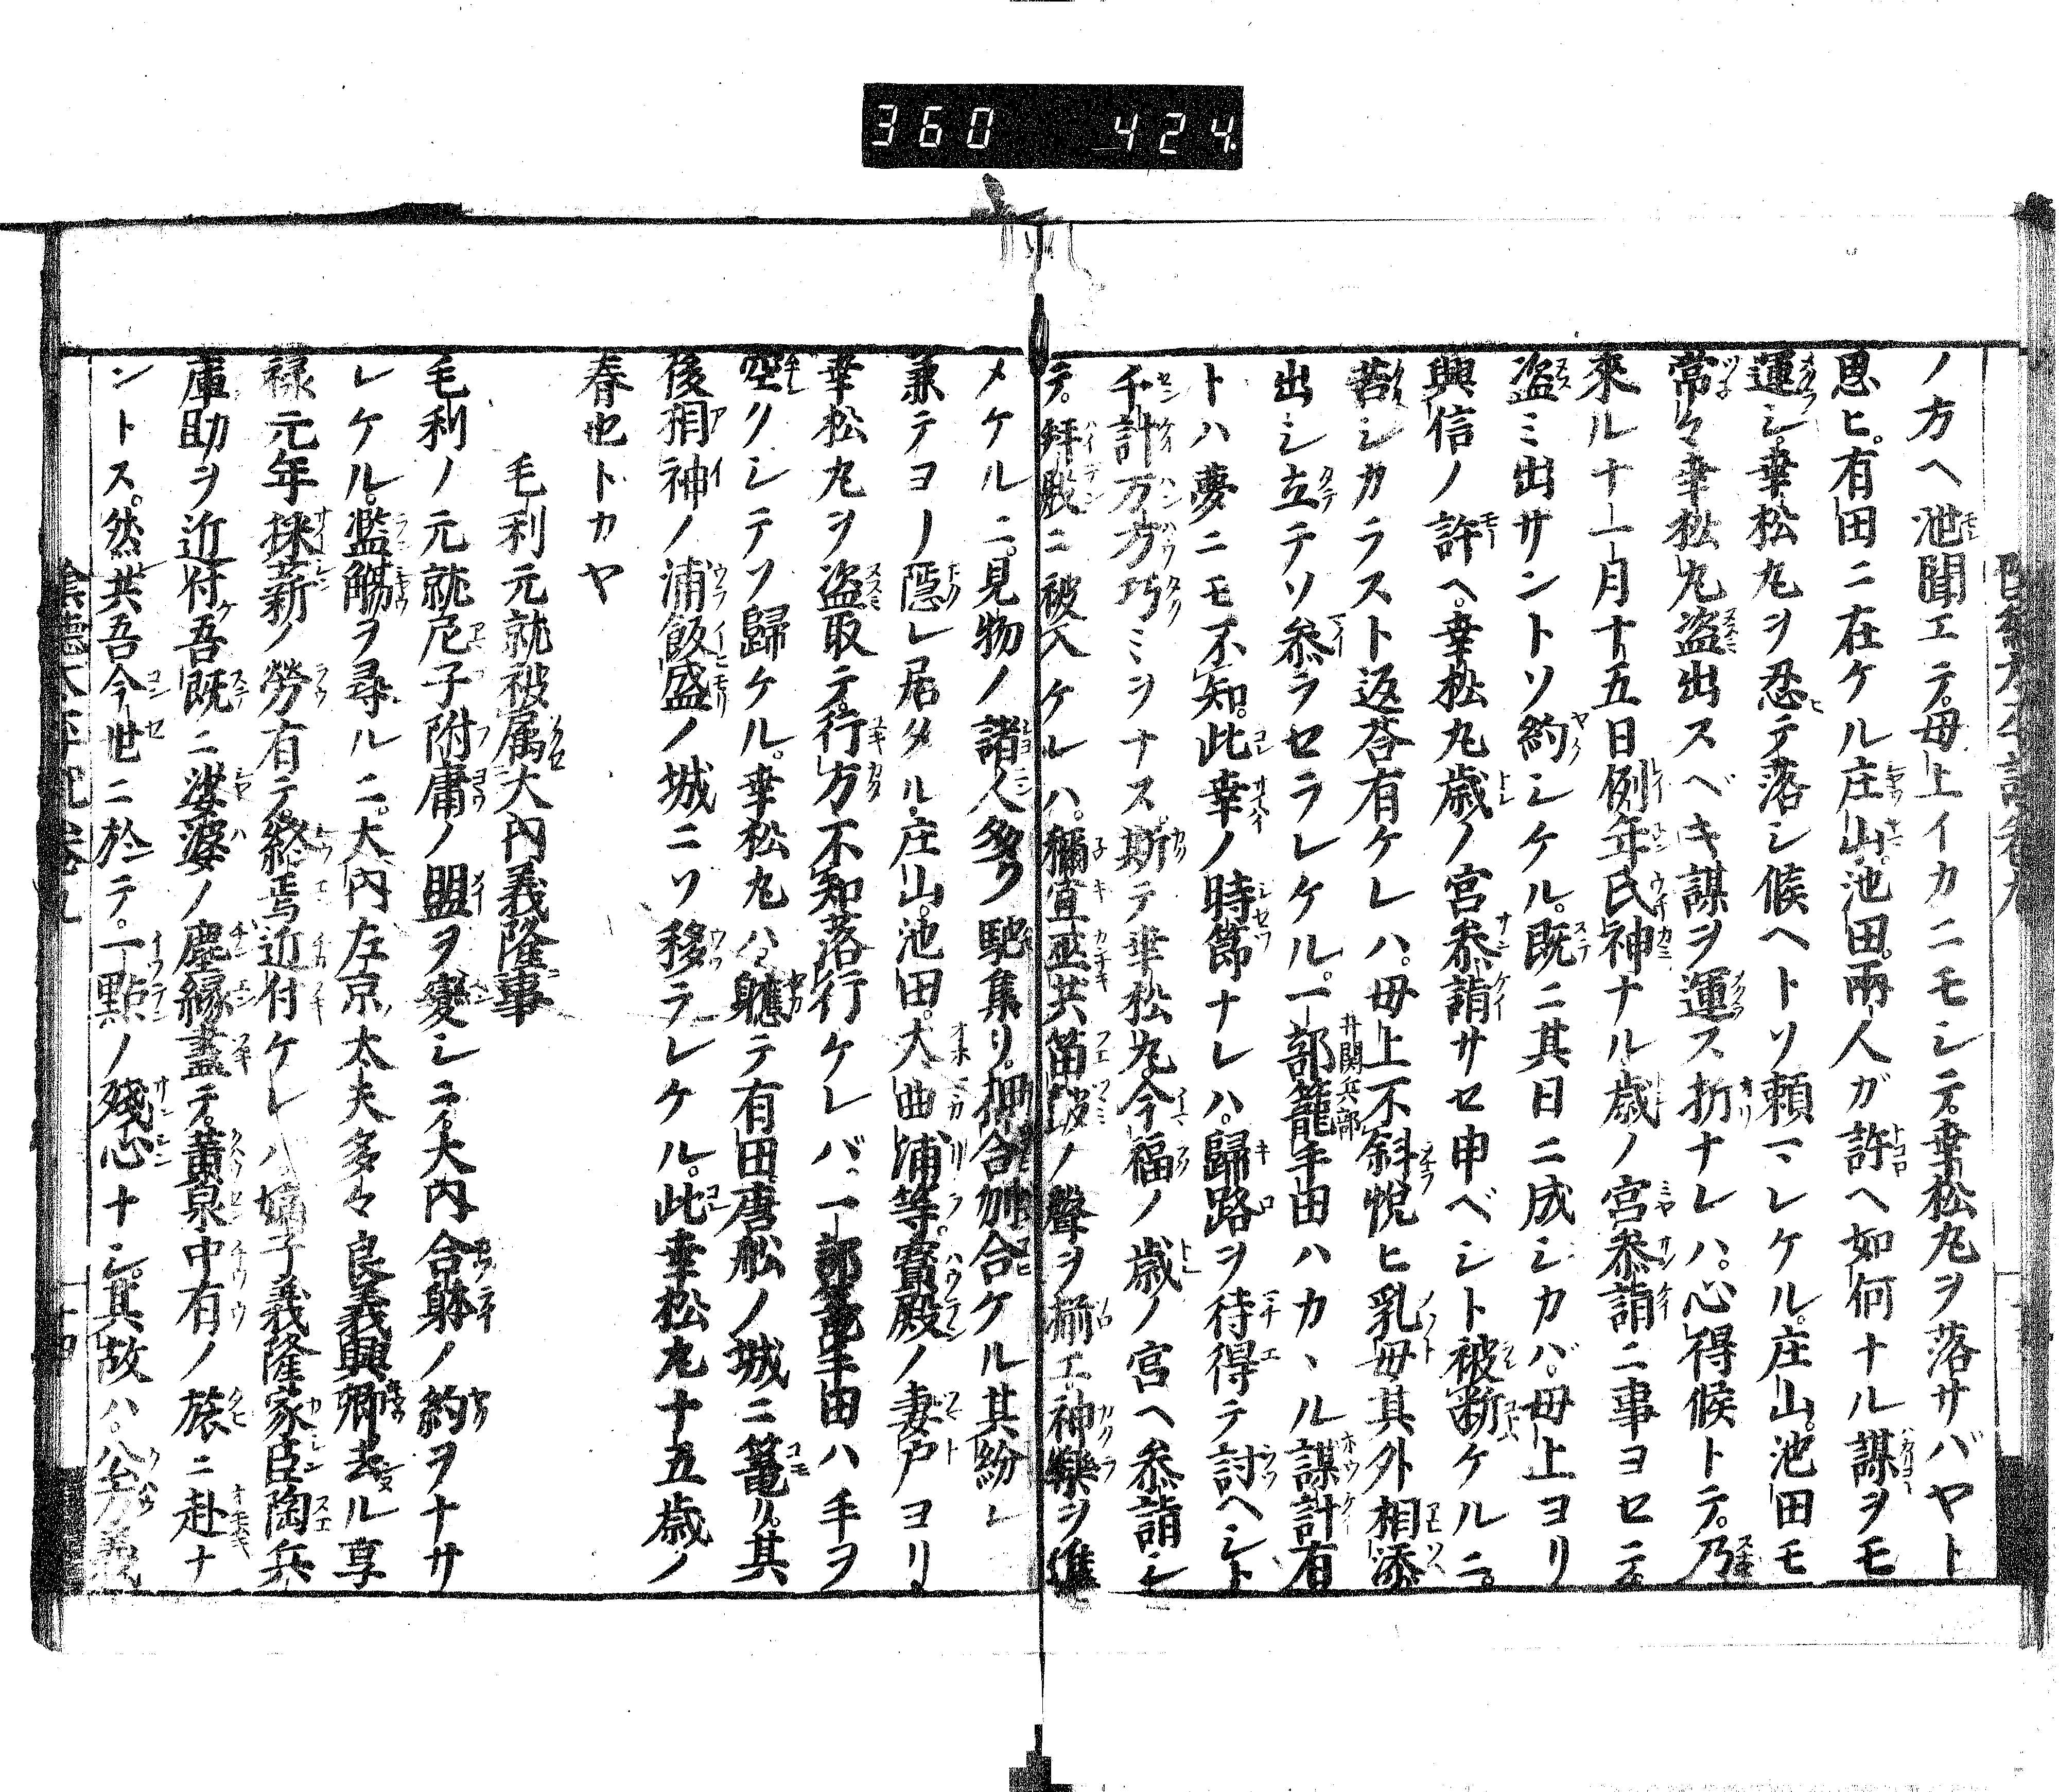 360 424
ノ方ヘ泄聞エテ。母上イカニモシテ。幸松丸ヲ落サバヤト
思ヒ。有田ニ在ケル庄山。池田。兩人ガ許ヘ如何ナル謀ヲモ
運シ。幸松丸ヲ忍テ落シ候ヘトソ頼マレケル。庄山。池田モ
常々幸松丸盗出スベキ謀ヲ運ス折ナレハ。心得候トテ。乃
來ル十一月十五日例年氏神ナル歳ノ宮叅詣ニ事ヨセテ
盗ミ出サントソ約シケル。既ニ其日ニ成シカバ。母上ヨリ
興信ノ許ヘ。幸松丸歳ノ宮叅詣サセ申ベシト被断ケルニ。
苦シカラスト返荅有ケレハ。母上不斜悦ヒ乳母其外相添
出シ立テソ叅ラセラレケル。一部籠手田ハカヽル謀計有
井関兵部
トハ夢ニモ不知。此幸ノ時節ナレハ。歸路ヲ待得テ討ヘシト
千計万方巧ミヲナス。斯テ幸松丸。今福ノ歳ノ宮ヘ叅詣シ
テ。拜殿ニ被入ケレハ。禰宜巫共笛鼓ノ聲ヲ揃エ。神樂ヲ進
メケルニ。見物ノ諸人多ク馳集リ。押合合ケル其紛レ
兼テヨノ隠レ居タル庄山。池田。大曲浦等寳殿ノ妻戸ヨリ
幸松丸ヲ盗取テ。行方不知落行ケレバ、一部籠手田ハ手ヲ
空クシテソ歸ケル。幸松丸ハ軈テ有田唐舩ノ城ニ篭リ。其
後相神ノ浦飯盛ノ城ニソ移ラレケル。此幸松丸十五歳ノ
春也トカヤ
毛利元就被属大内義隆事
毛利ノ元就尼子附庸ノ盟ヲ變シテ。大内合躰ノ約ヲナサ
レケル。濫觴ヲ尋ルニ。大内左京太夫多々良義興卿去ル享
禄元年採薪ノ勞有テ。終焉近付ケレハ嫡子義隆家臣陶兵
庫助ヲ近付吾既ニ娑婆ノ塵縁盡テ。黄泉中有ノ旅ニ赴ナ
ントス。然共吾今世ニ於テ。一點ノ殘心ナシ。其故ハ。公方義